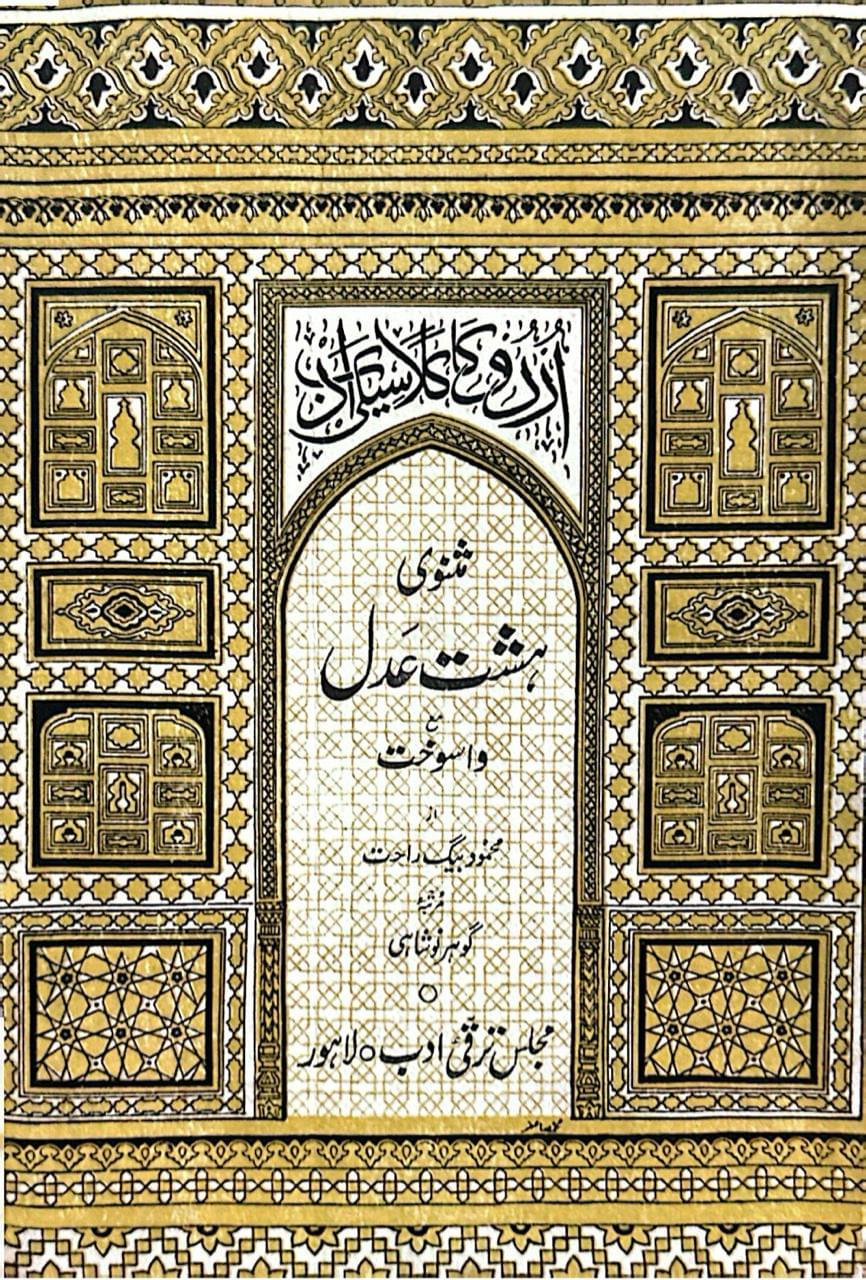 اُردُو کا کلاسیکی ادب
مثنوی
ہشت عَدل
مع
واسوخت
از
محمود بیگ راحت
مرتبۂ
گوہر نوشاہی
مجلس ترقیٔ ادب ○ لاہور